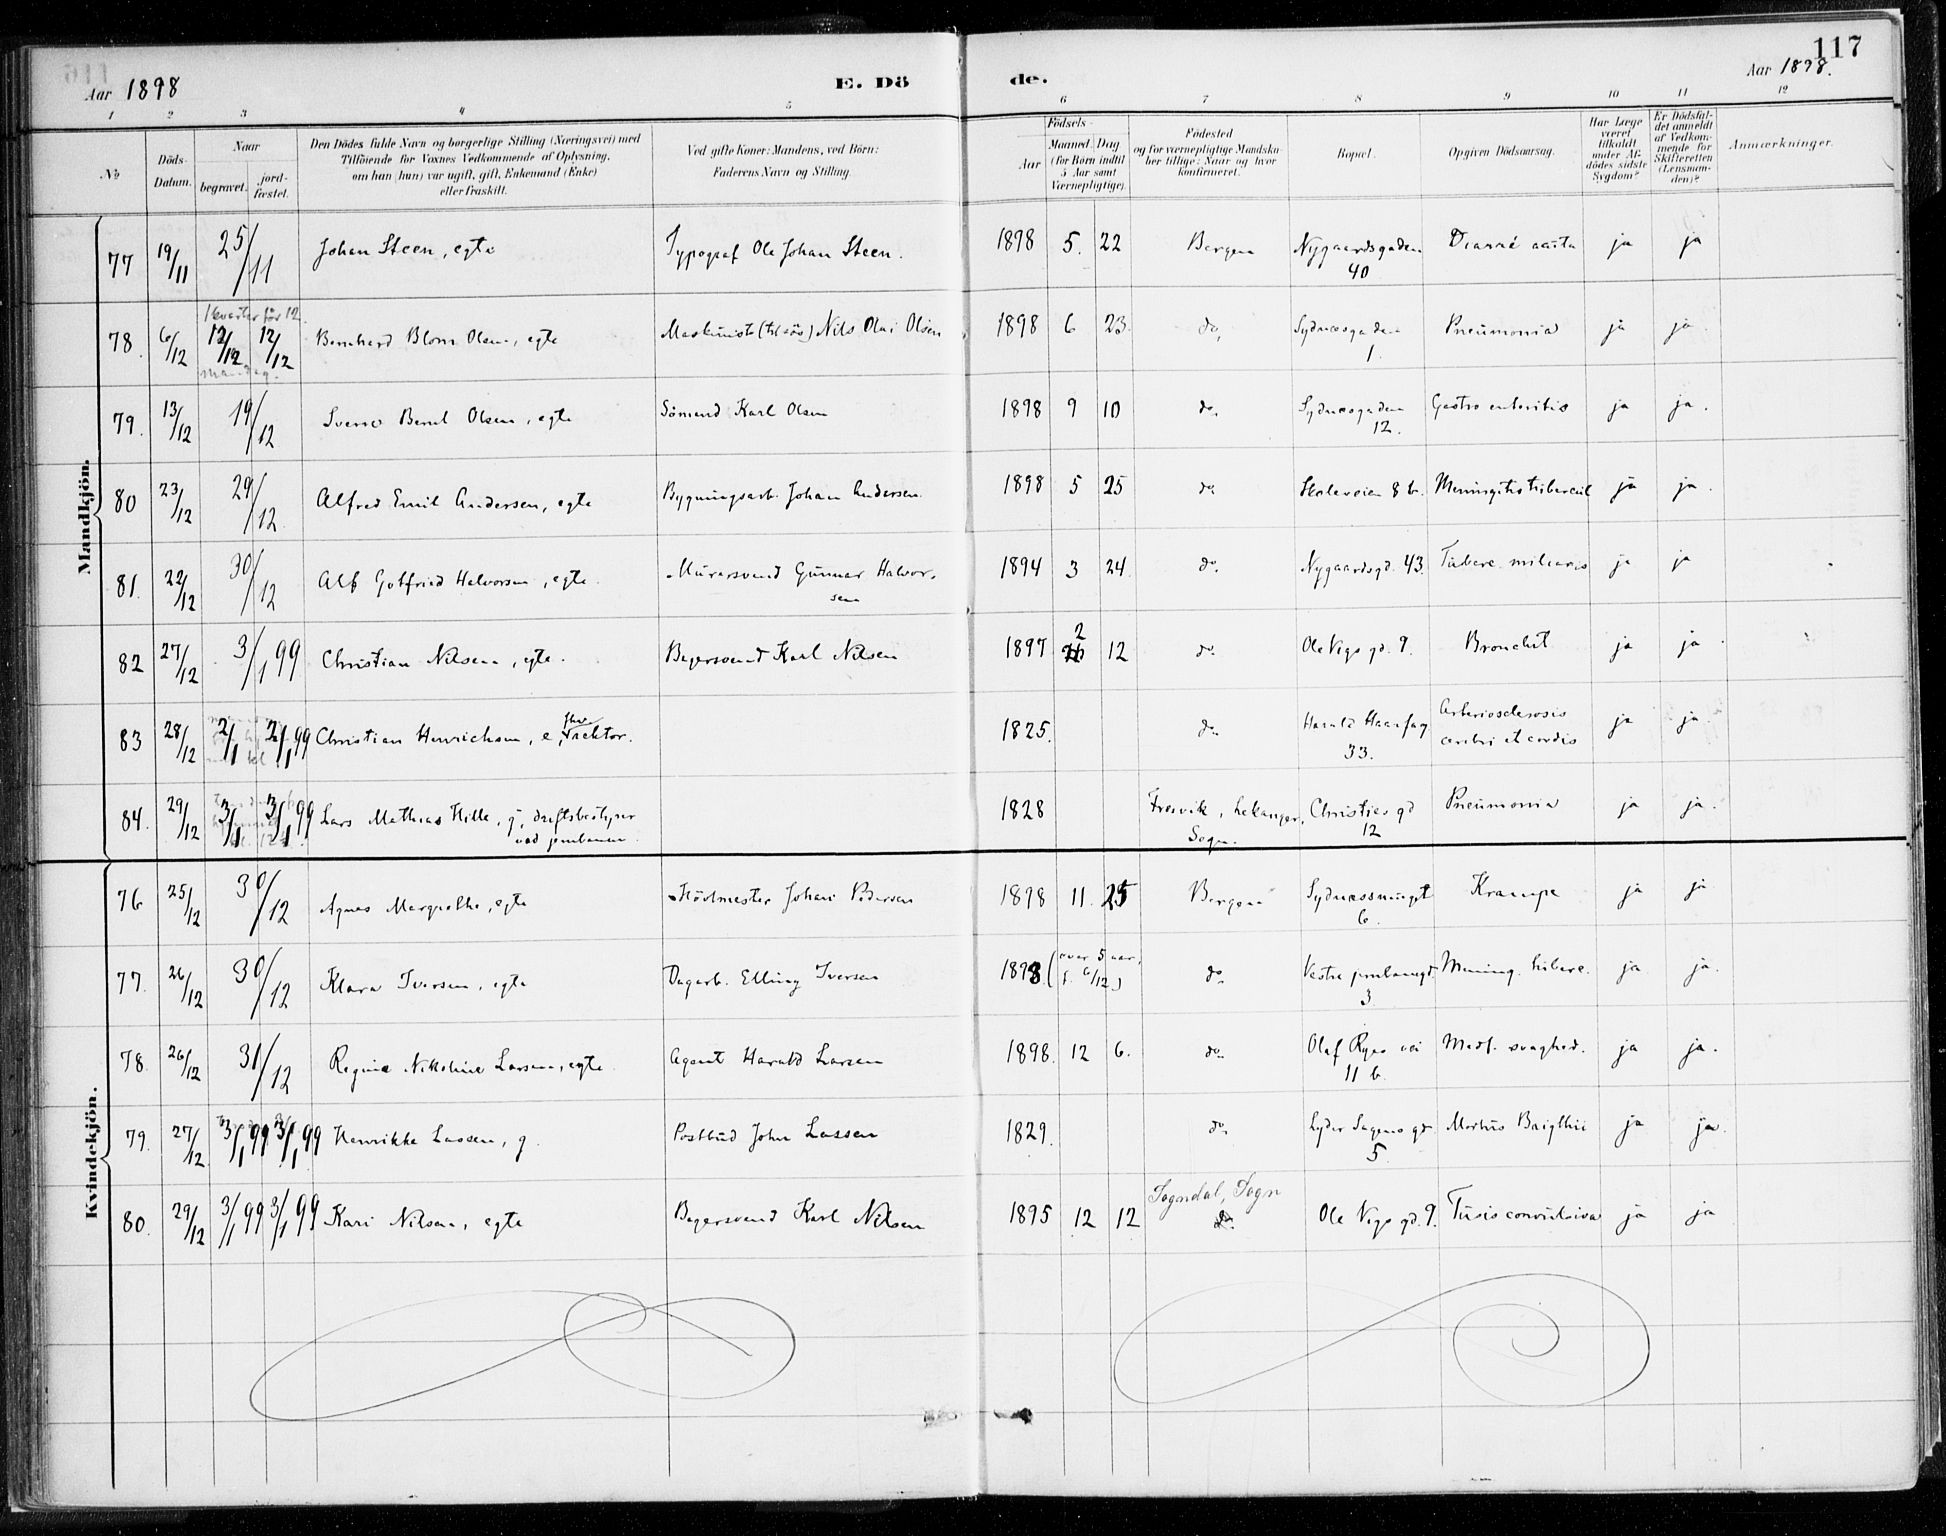 117
Aar 1898 E. Dö de. Aar 1898.
1 2 3 4 5 6 7 8 9 10 11 12
No Döds-Datum. Naar begravet. jord-fæstet. Den Dödes fulde Navn og borgerlige Stilling (Næringsvei) med Tilföiende for Voxnes Vedkommende af Oplysning, om han (hun) var ugift, gift, Enkemand (Enke) eller fraskilt. Ved gifte Koner: Mandens, ved Börn: Faderens Navn og Stilling. Födsels- Aar Maaned. Dag (for Börn indtil 5 Aar samt Værnepligtige). Födested og for værnepligtige Mandskaber tillige: Naar og hvor konfirmeret. Bopæl. Opgiven Dödsaarsag. Har Læge været tilkaldt under Afdödes sidste Sygdom? Er Dödsfaldet anmeldt af Vedkommende for Skifteretten (Lensmanden)? Anmærkninger.
Mandkjön.
77 19/11 25/11 Johan Steen, egte Typograf Ole Johan Steen. 1898 5. 22 Bergen Nygaardsgaden 40 Diarré ja ja
78. 6/12 12/12 12/12 Bernhard Blom Olsen, egte Maskinist (tilsös) Nils Olai Olsen 1898 6 23 do. Sydnæsgaden 1. Pneumonia ja ja
79. 13/12 19/12 Sverre Bernt Olsen, egte Sömand Karl Olsen 1898 9 10 do. Sydnæsgaden 12. Gastro enteritis ja ja.
80 23/12 29/12 Alfred Emil Andersen, egte Bygningsarb. Johan Andersen. 1898 5 25 do Skoleveien 8 b. Meningitis tubercul ja ja.
81. 22/12 30/12 Alf Gotfried Halvorsen, egte. Murersvend Gunnar Halvorsen 1894 3 24 do. Nygaardsgd. 43. Tuberc. miliaris ja ja
82 27/12 3/1 99 Christian Nilsen, egte. Bagersvend Karl Nilsen 1897 2 12 do. Ole Vigs gd. 9. Bronchit ja ja
83 28/12 2/1 2/1 99 Christian Henrichsen, e, Traktør. 1825. do. Harald Haarfag 33. Arteriosclerosis cerebri et cordis ja ja
84. 29/12 3/1 3/1 99 Lars Mathias Hille, g, driftsbestyrer ved jernbanen. 1828 Fresvik, Lekanger, Sogn. Christies gd 12 Pneumonia ja ja.
Kvindekjön.
76 25/12 30/12 Agnes Margrethe, egte Hövlmester Johan Pedersen 1898 11. 25 Bergen Sydnæssmuget 6. Krampe ja ja
77. 26/12 30/12 Klara Iversen, egte Dagarb. Elling Iversen 1893 (over 5 aar, f. 6/12) do. Vestre jernbanegd. 3. Mening. tuberc. ja ja.
78. 26/12 31/12 Regine Nikoline Larsen, egte. Agent Harald Larsen 1898. 12 6. do. Olaf Ryes vei 11 b. Medf. svaghed. ja ja.
79. 27/12 3/1 99 3/1 99 Henrikke Lassen, g. Postbud John Lassen 1829. do. Lyder Sagens gd. 5. Morbus Brigthii ja ja.
80. 29/12 3/1 99 3/1 99 Kari Nilsen, egte Bagersvend Karl Nilsen 1895 12 12 Sogndal, Sogn Ole Vigs gd. 9. Tusis convulsiva ja ja